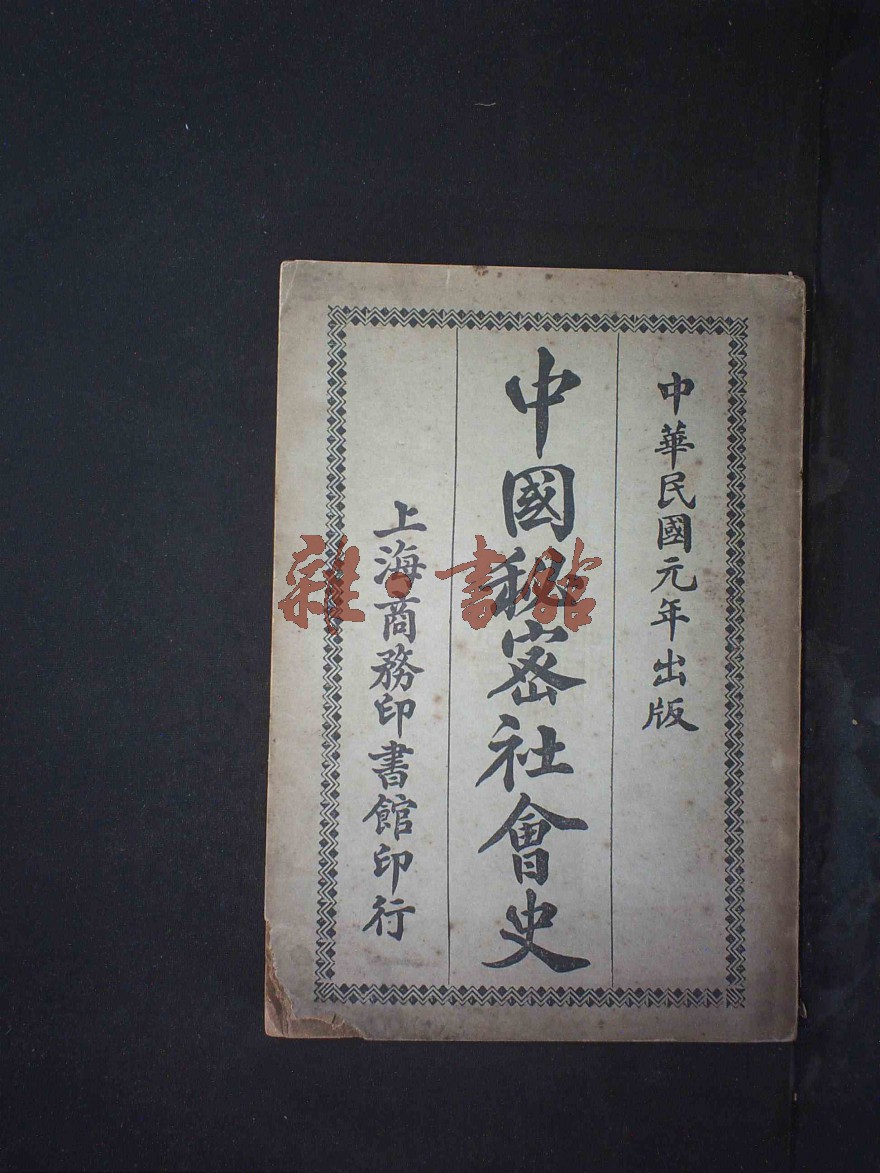 中華民國元年出版
中國秘密社會史
上海商務印書館印行
雜·書館